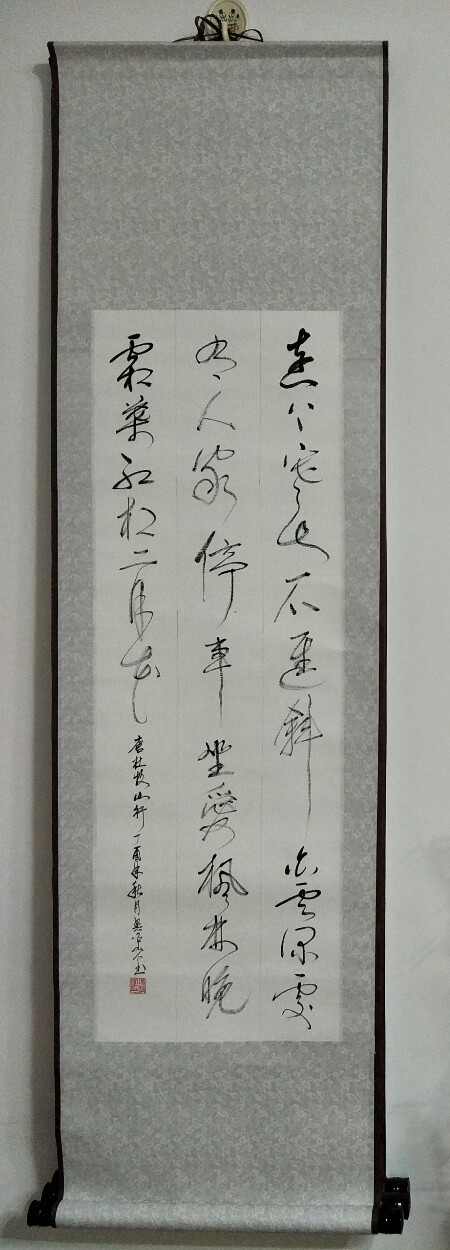 遠上寒山石逕斜白雲深處
有人家停車坐愛楓林晚
霜葉紅於二月花
唐杜牧山行丁酉年秋月